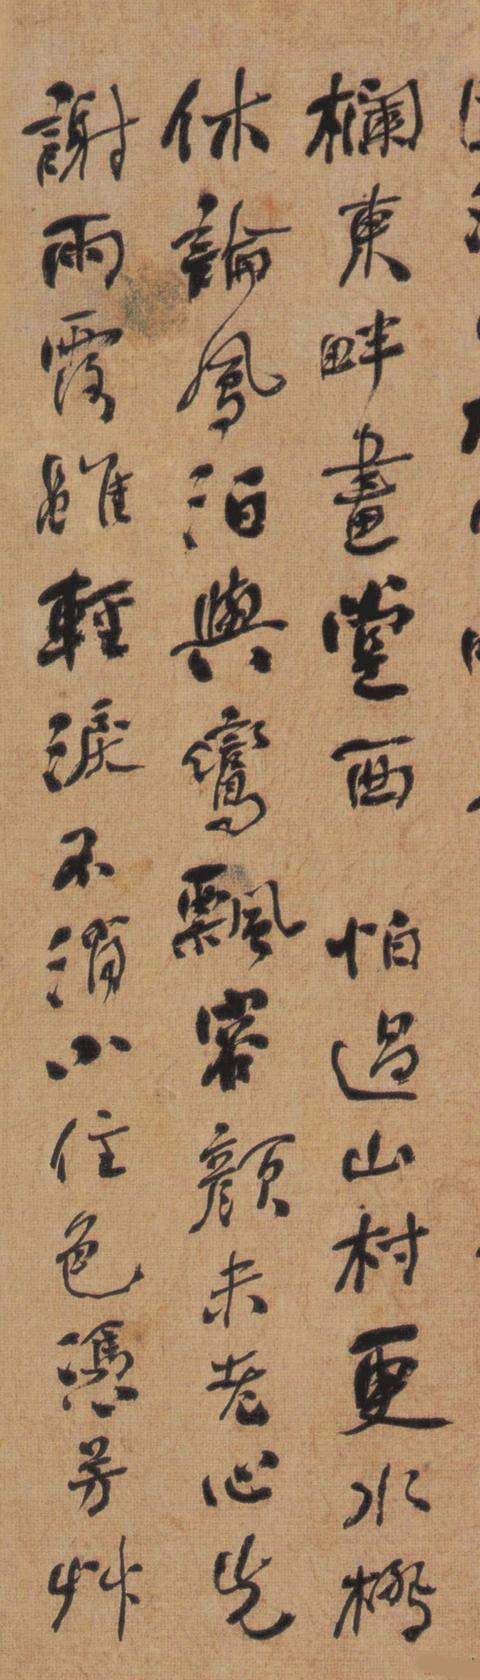 欄東畔畫堂西 怕過山村更水橋
休論鳳泊與鸞飄容顏未老心先
謝雨霞雖輕淚不消小住色憑芳艸